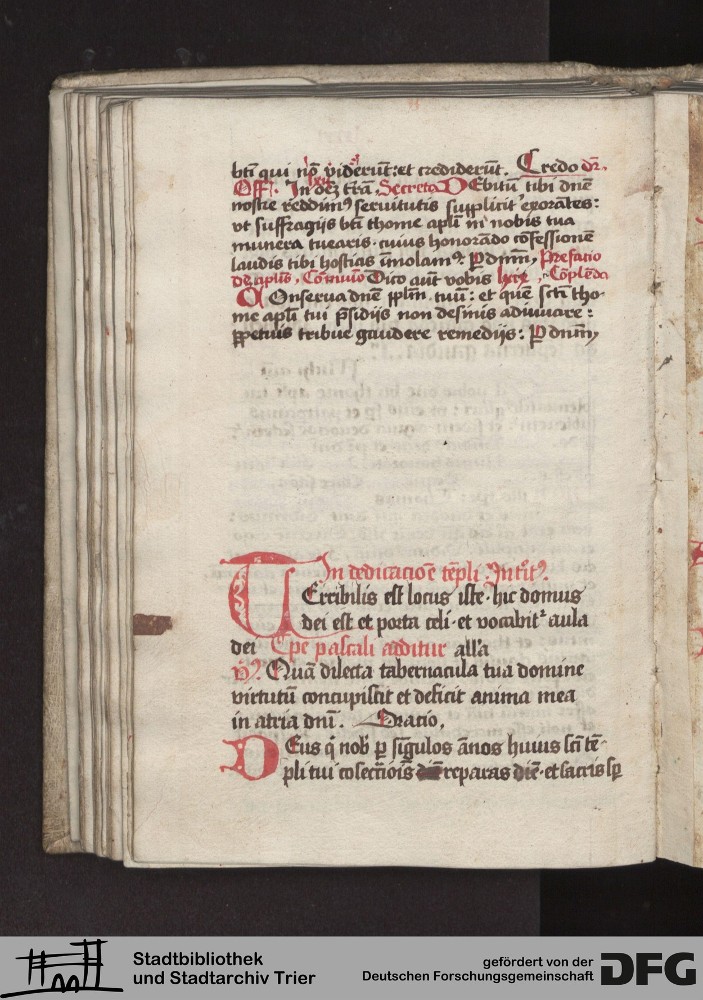 bti qui nō viderūt: et crediderūt. Credo dr.
Off. In oēz trā. Secreta DEbitū tibi dnē
nostre reddim9 seruitutis suppliciter exorātes:
vt suffragijs bti thome apli in nobis tua
munera tuearis. cuius honorādo cōfessionē
laudis tibi hostias ūmolam9. P dnm, Prefacio
de aplis, Cōmunio Dico aūt vobis Cōplenda
COnserua dnē pplm tuū: et quē scti tho-
me apli tui psidijs non desinis adiuuare:
ppetuis tribue gaudere remedijs: P dnm,
In dedicacioē tēpli Intit9.
TErribilis est locus iste. hic domus
dei est et porta celi. et vocabit aula
dei Tpe pascali additur alla
v9. Quā dilecta tabernacula tua domine
virtutū concupiscit et deficit anima mea
in atria dnī. Oracio.
DEus q nob p singulos ānos huius scti tē-
pli tui cōsecrōis reparas diē. et sacris sp
Stadtbibliothek
und Stadtarchiv Trier
gefördert von der
Deutschen Forschungsgemeinschaft
DFG